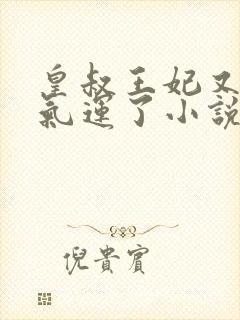 皇叔王妃又
氣運了小說
倪貴賓